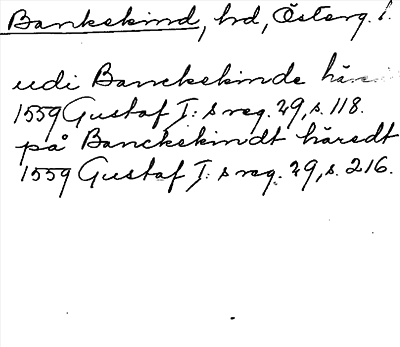 Bankekind, hd, Österg. l.
udi Banckekinde häre
1559 Gustaf I:s reg. 29, s. 118.
på Banckekindt häredt
1559 Gustaf I:s reg. 29, s. 216.